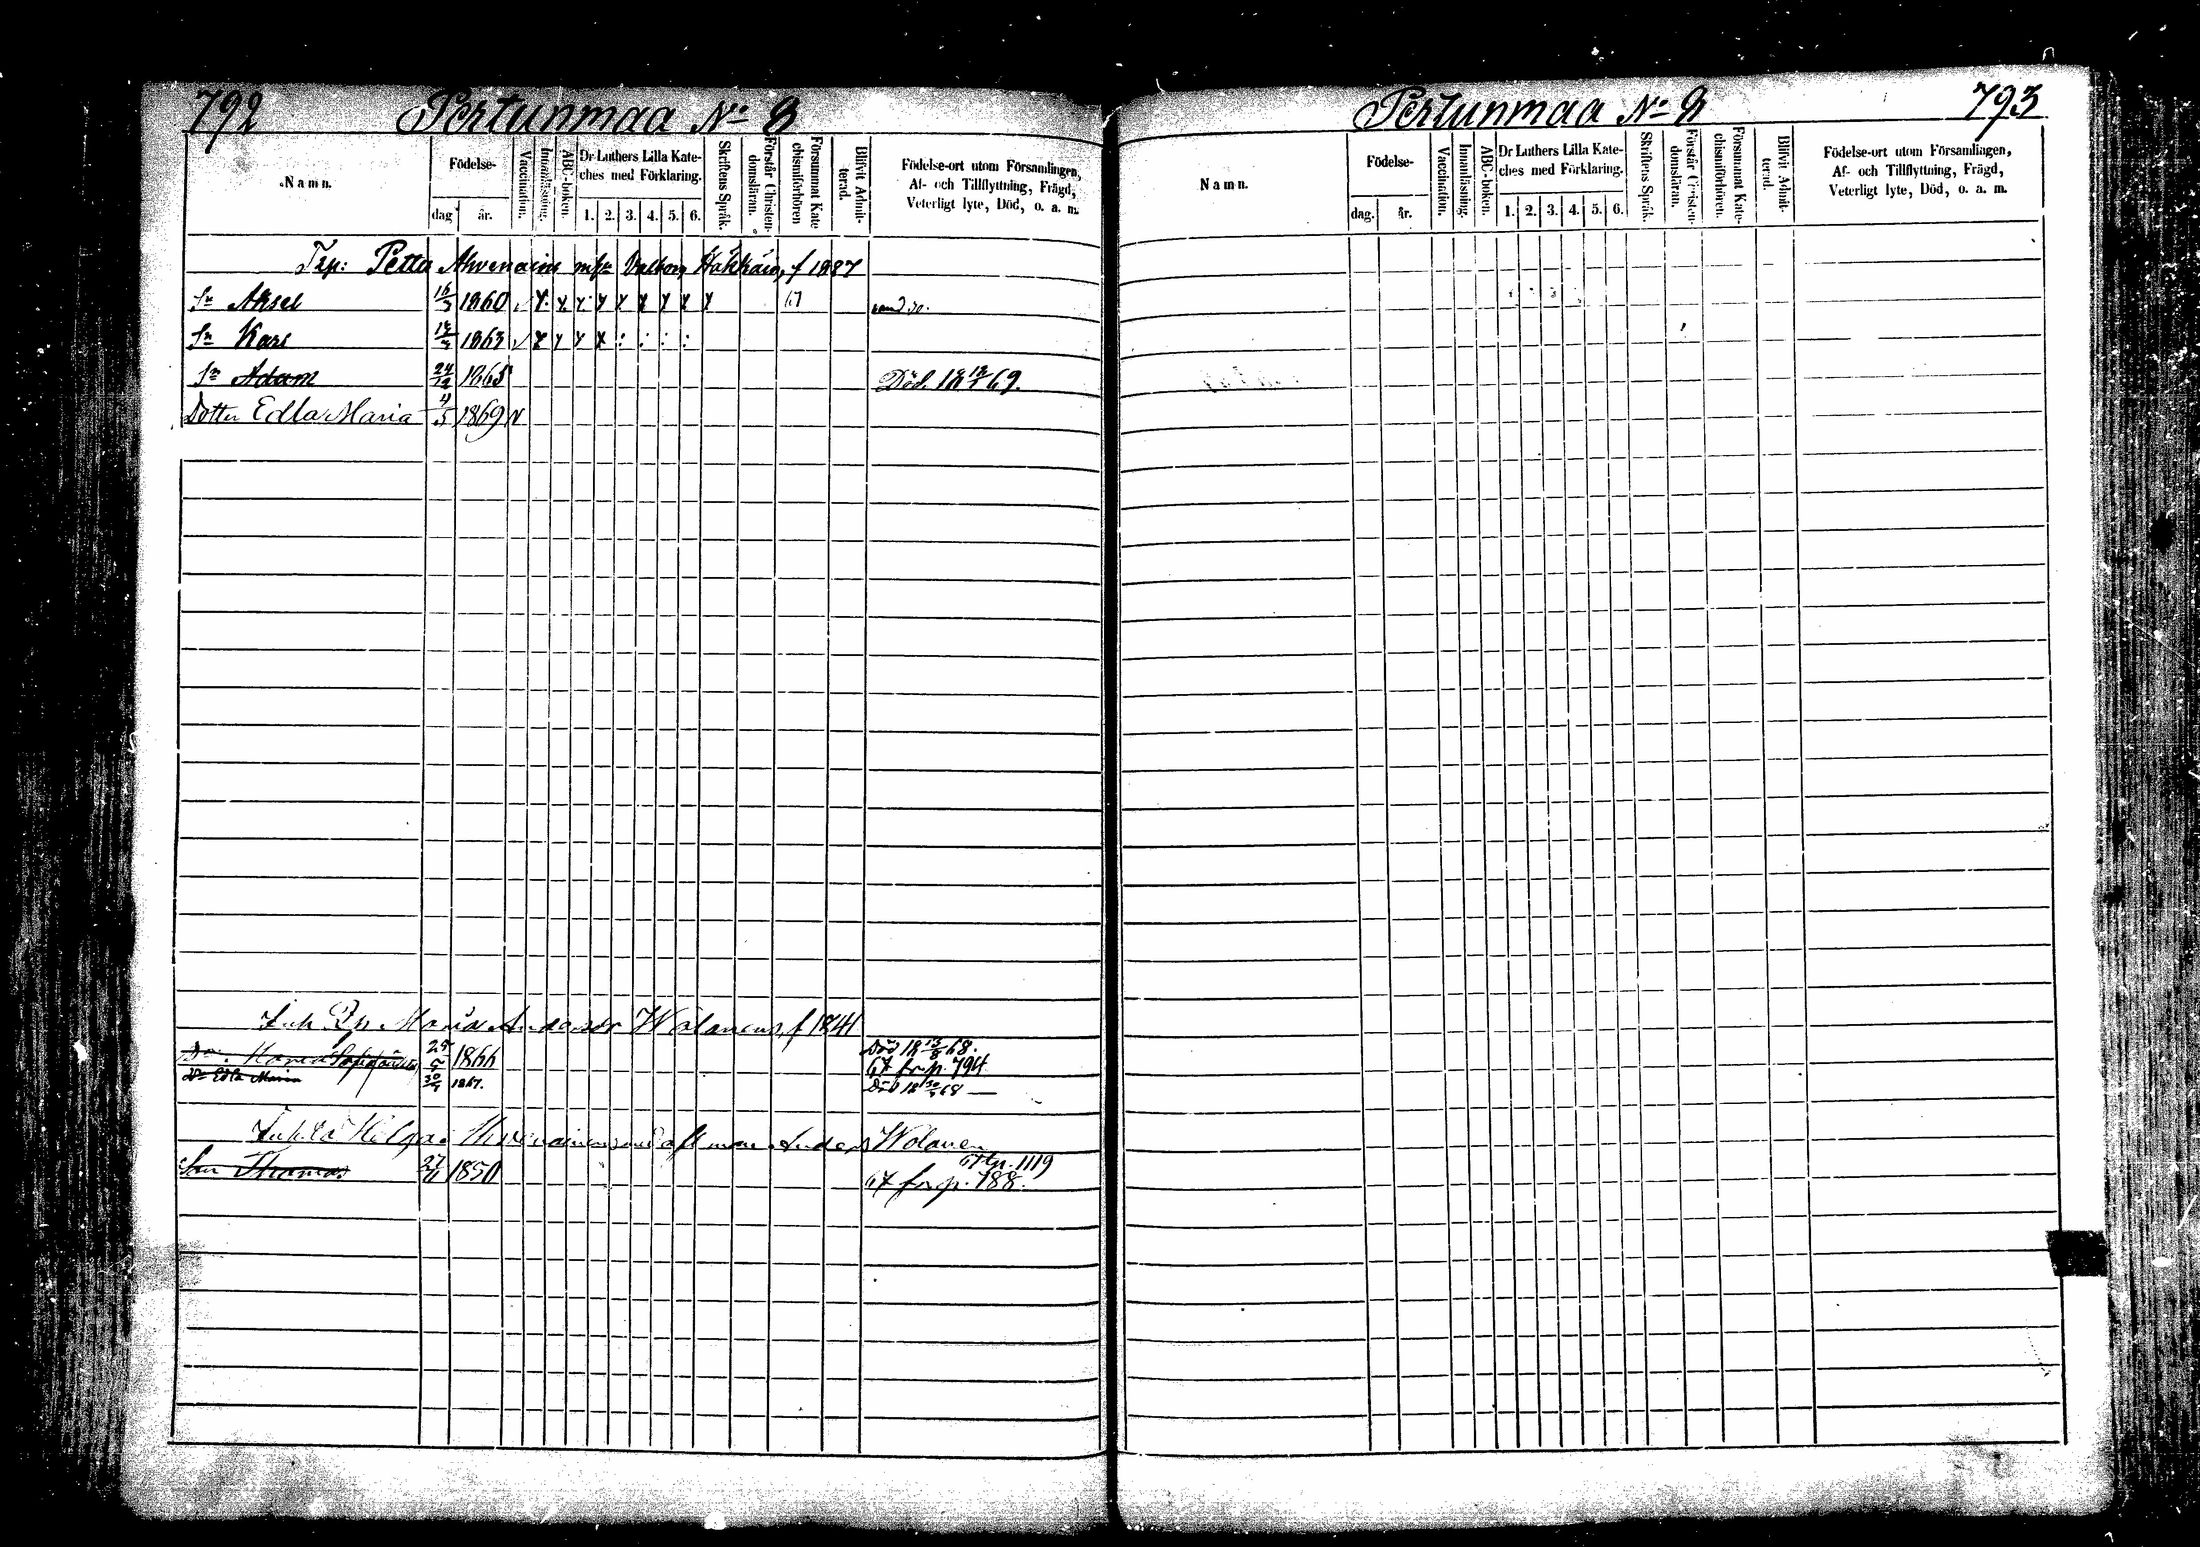 792 Pertunmaa No 8
Namn.
Födelse-
dag år.
Vaccination.
Innanläsning.
ABC-boken.
Dr Luthers Lilla Kate-
ches med Förklaring.
1. 2. 3. 4. 5. 6.
Skriftens Språk.
Förstår Christen-
domsläran.
Försummat Kate
chismiförhören
Blifvit Admit-
terad.
Födelse-ort utom Församlingen,
Af- och Tillflyttning, Frägd,
Veterligt lyte, Död, o. a. m.
Petter Ahvenainen Valborg f 1837
Sn Aksel 16/3 1860 √ x x x x x x x x x 67
Sn Karl 1863 √ x x x x : : : :
Sn Adam 24/12 1865 Död. 18 12/1 69.
Dotter Edla Maria 4/5 1869 √
Maria Andersdr f 1841
Dr Maria 25/5 1866 Död 18 13/8 68.
67 fr. p. 794.
Dr Edla Maria 1867. Död 18 68
Helga Ahvenainen man Anders Wolanen
67 t. p. 1119
Son Thomas 27/11 1850 67 fr. p. 788.
Pertunmaa No 8 793
Namn.
Födelse-
dag. år.
Vaccination.
Innanläsning.
ABC-boken.
Dr Luthers Lilla Kate-
ches med Förklaring.
1. 2. 3. 4. 5. 6.
Skriftens Språk.
Förstår Cristen-
domsläran.
Försummat Kate-
chismiförhören.
Blifvit Admit-
terad.
Födelse-ort utom Församlingen,
Af- och Tillflyttning, Frägd,
Veterligt lyte, Död, o. a. m.